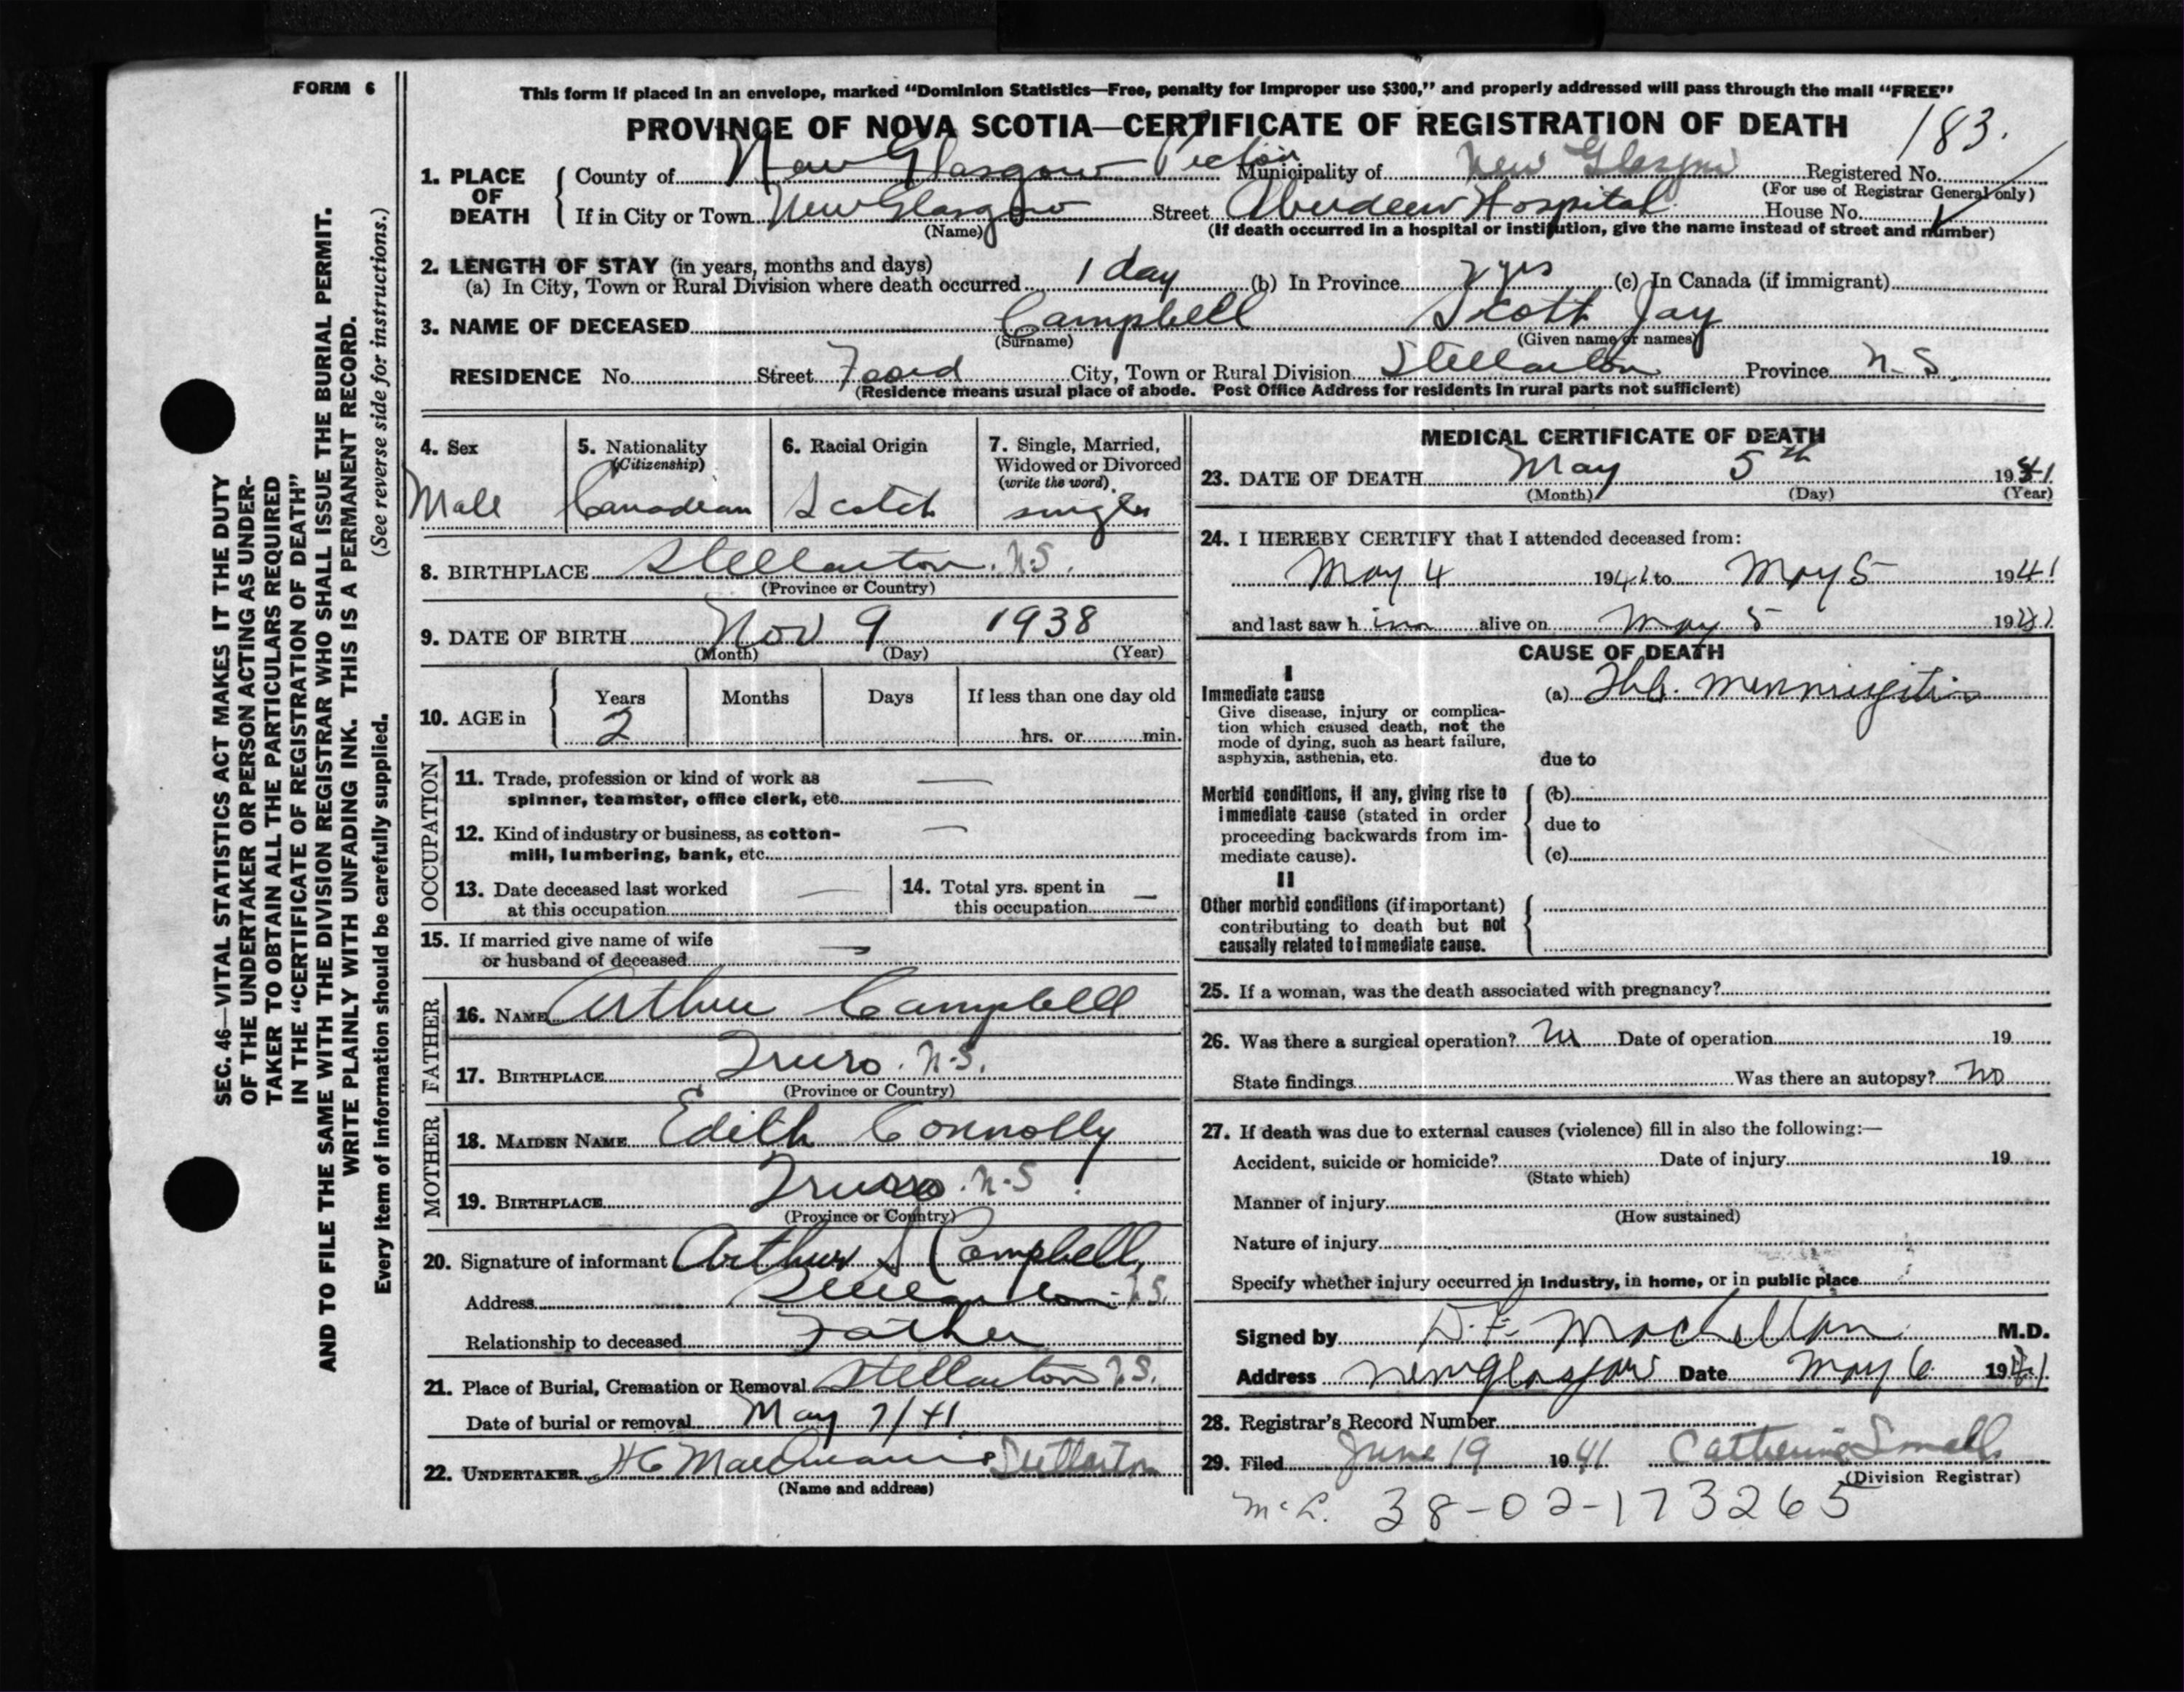 FORM 6
This form if placed in an envelope, marked “Dominion Statistics—Free, penalty for improper use $300,” and properly addressed will pass through the mail “FREE”
PROVINCE OF NOVA SCOTIA—CERTIFICATE OF REGISTRATION OF DEATH
183.
1. PLACE OF DEATH
County of New Glasgow Pictou Municipality of New Glasgow Registered No.
(For use of Registrar General only)
If in City or Town New Glasgow Street Aberdeen Hospital House No.
(Name) (If death occurred in a hospital or institution, give the name instead of street and number)
2. LENGTH OF STAY (in years, months and days)
(a) In City, Town or Rural Division where death occurred 1 day (b) In Province 2 yrs (c) In Canada (if immigrant)
3. NAME OF DECEASED Campbell Scott Jay
(Surname) (Given name or names)
RESIDENCE No. Street Foord City, Town or Rural Division Stellarton Province N.S.
(Residence means usual place of abode. Post Office Address for residents in rural parts not sufficient)
4. Sex
Male
5. Nationality
(Citizenship)
Canadian
6. Racial Origin
Scotch
7. Single, Married,
Widowed or Divorced
(write the word)
single
8. BIRTHPLACE Stellarton. N.S.
(Province or Country)
9. DATE OF BIRTH Nov 9 1938
(Month) (Day) (Year)
10. AGE in
Years Months Days If less than one day old
2 hrs. or min.
OCCUPATION
11. Trade, profession or kind of work as —
spinner, teamster, office clerk, etc.
12. Kind of industry or business, as cotton- —
mill, lumbering, bank, etc.
13. Date deceased last worked —
at this occupation
14. Total yrs. spent in —
this occupation
15. If married give name of wife —
or husband of deceased
FATHER
16. NAME Arthur Campbell
17. BIRTHPLACE Truro. N.S.
(Province or Country)
MOTHER
18. MAIDEN NAME Edith Connolly
19. BIRTHPLACE Truro. N.S
(Province or Country)
20. Signature of informant Arthur S Campbell
Address Stellarton N.S.
Relationship to deceased Father
21. Place of Burial, Cremation or Removal Stellarton N.S.
Date of burial or removal May 7/41
22. UNDERTAKER Stellarton
(Name and address)
MEDICAL CERTIFICATE OF DEATH
23. DATE OF DEATH May 5th 1941
(Month) (Day) (Year)
24. I HEREBY CERTIFY that I attended deceased from:
May 4 1941 to May 5 1941
and last saw h im alive on May 5 1941
CAUSE OF DEATH
I
Immediate cause
Give disease, injury or complica-
tion which caused death, not the
mode of dying, such as heart failure,
asphyxia, asthenia, etc.
(a) Tbc. Menningitis
due to
Morbid conditions, if any, giving rise to
immediate cause (stated in order
proceeding backwards from im-
mediate cause).
(b)
due to
(c)
II
Other morbid conditions (if important)
contributing to death but not
causally related to immediate cause.
25. If a woman, was the death associated with pregnancy?
26. Was there a surgical operation? No Date of operation 19
State findings Was there an autopsy? No
27. If death was due to external causes (violence) fill in also the following:—
Accident, suicide or homicide? Date of injury 19
(State which)
Manner of injury
(How sustained)
Nature of injury
Specify whether injury occurred in industry, in home, or in public place
Signed by D. F. MacLellan M.D.
Address New Glasgow Date May 6 1941
28. Registrar's Record Number
29. Filed June 19 1941 Catherine Smalls
(Division Registrar)
McL. 38-02-173265
SEC. 46—VITAL STATISTICS ACT MAKES IT THE DUTY
OF THE UNDERTAKER OR PERSON ACTING AS UNDER-
TAKER TO OBTAIN ALL THE PARTICULARS REQUIRED
IN THE “CERTIFICATE OF REGISTRATION OF DEATH”
AND TO FILE THE SAME WITH THE DIVISION REGISTRAR WHO SHALL ISSUE THE BURIAL PERMIT.
WRITE PLAINLY WITH UNFADING INK. THIS IS A PERMANENT RECORD.
Every item of information should be carefully supplied. (See reverse side for instructions.)